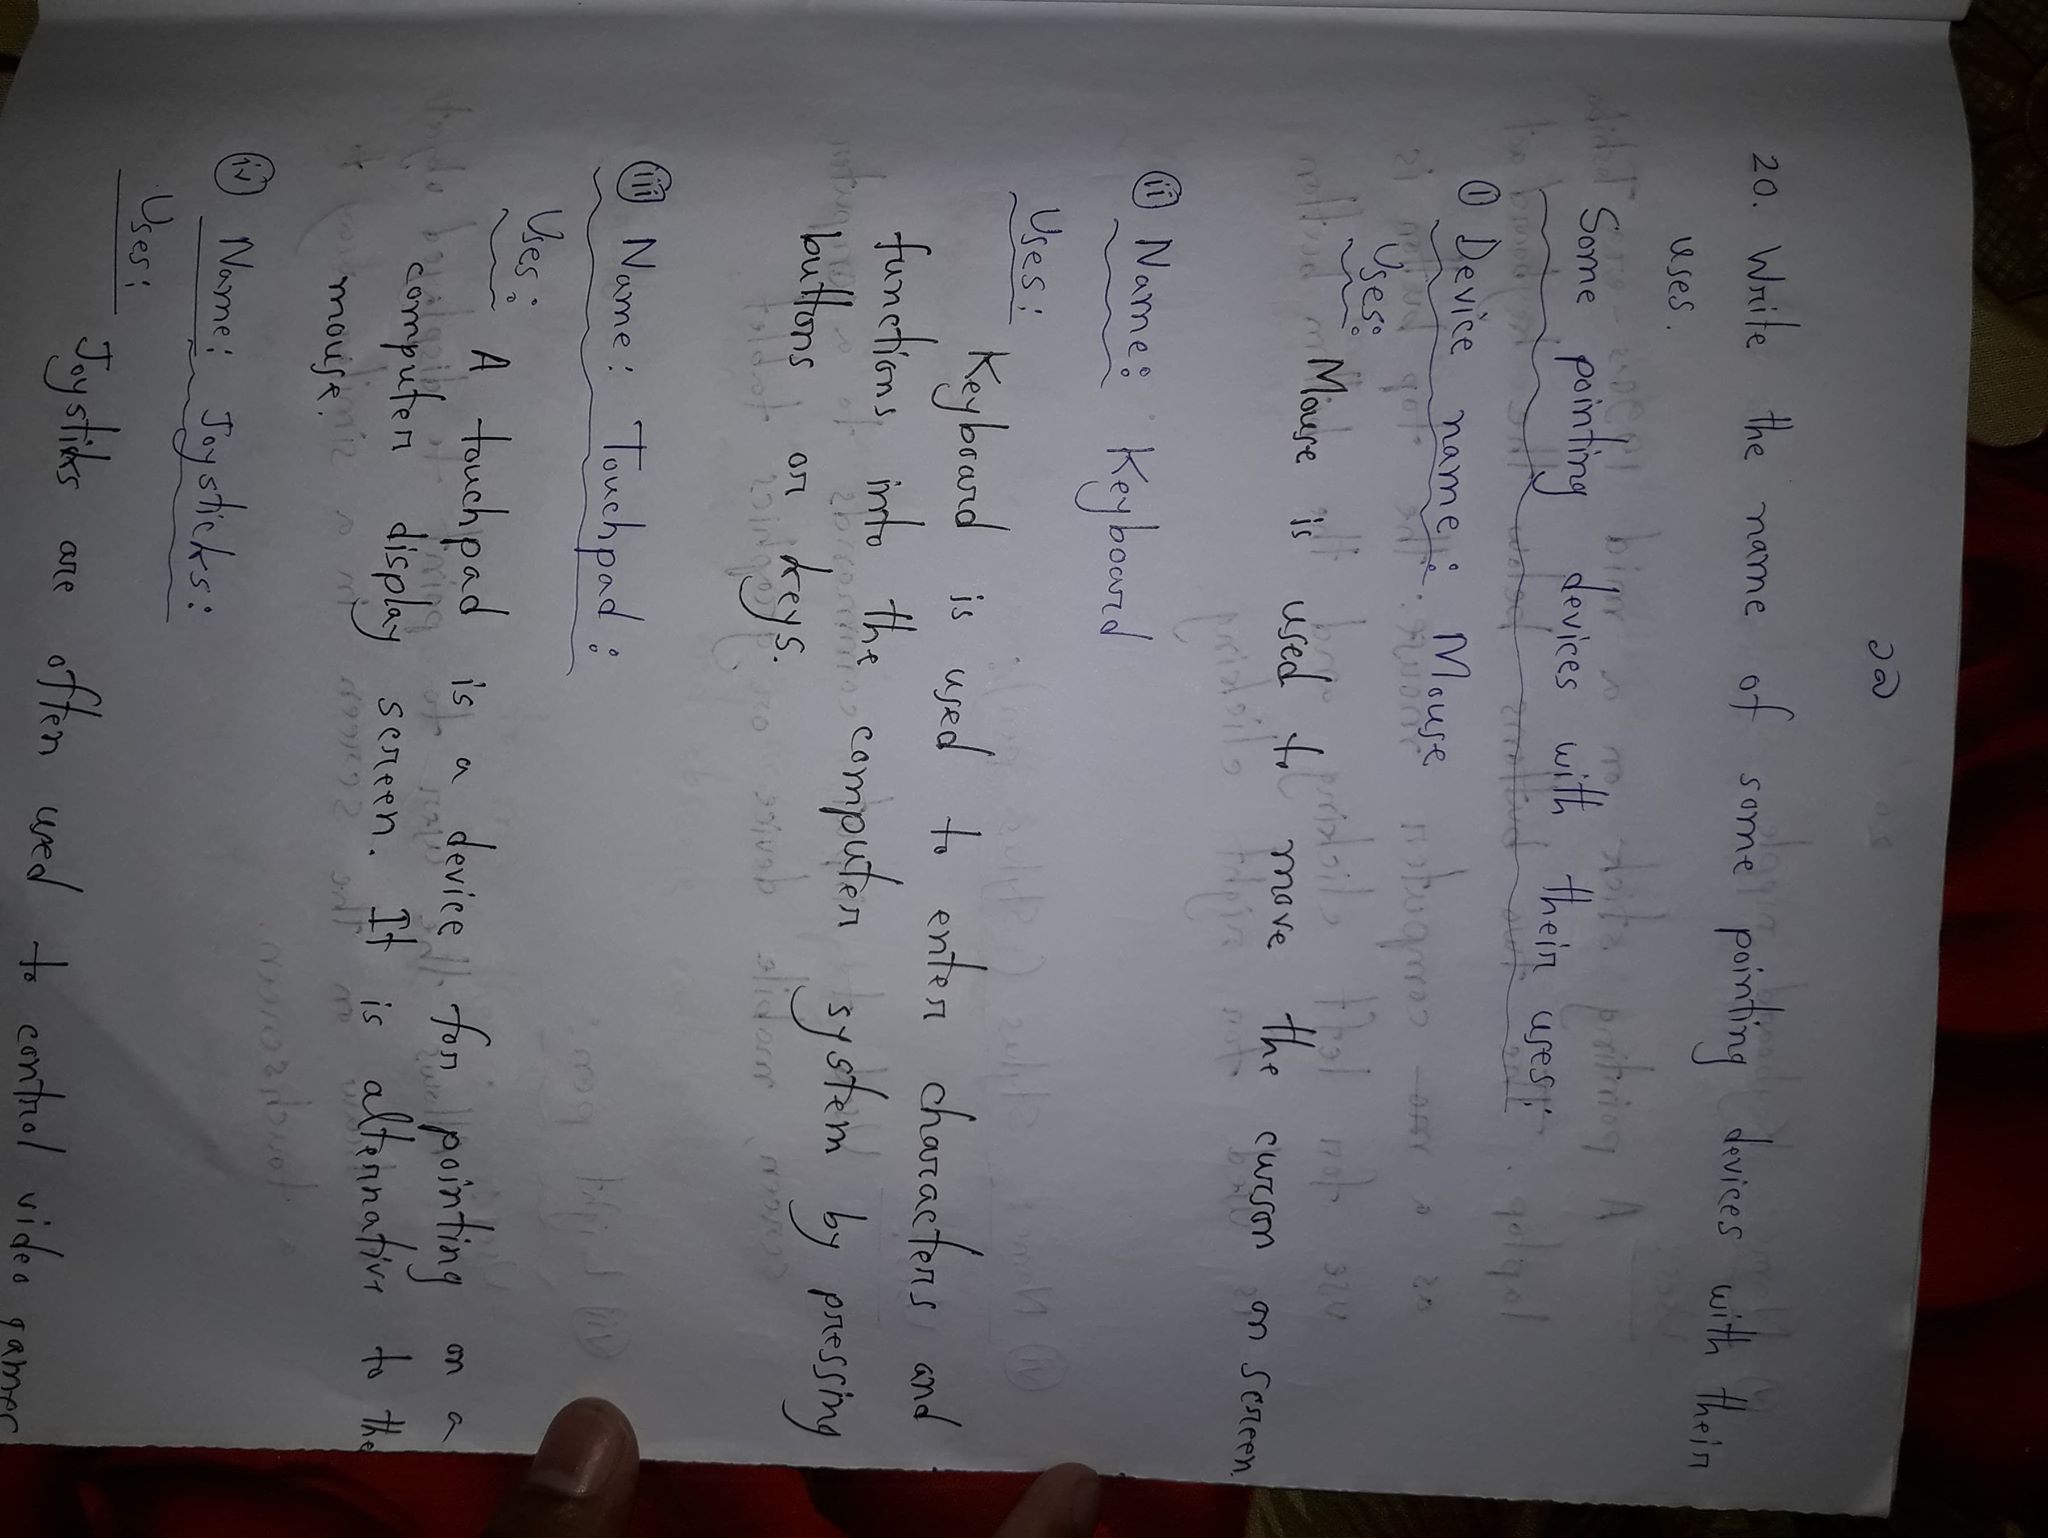 ১৯
20. Write the name of some pointing devices with their
uses.
Some pointing devices with their uses:
i Device name: Mouse
Uses:
Mouse is used to move the cursor on screen.
ii Name: Keyboard
Uses:
Keyboard is used to enter characters and
functions into the computer system by pressing
buttons or keys.
iii Name: Touchpad:
Uses:
A touchpad is a device for pointing on a
computer display screen. It is alternative to the
mouse.
iv Name: Joysticks:
Uses:
Joysticks are often used to control video games